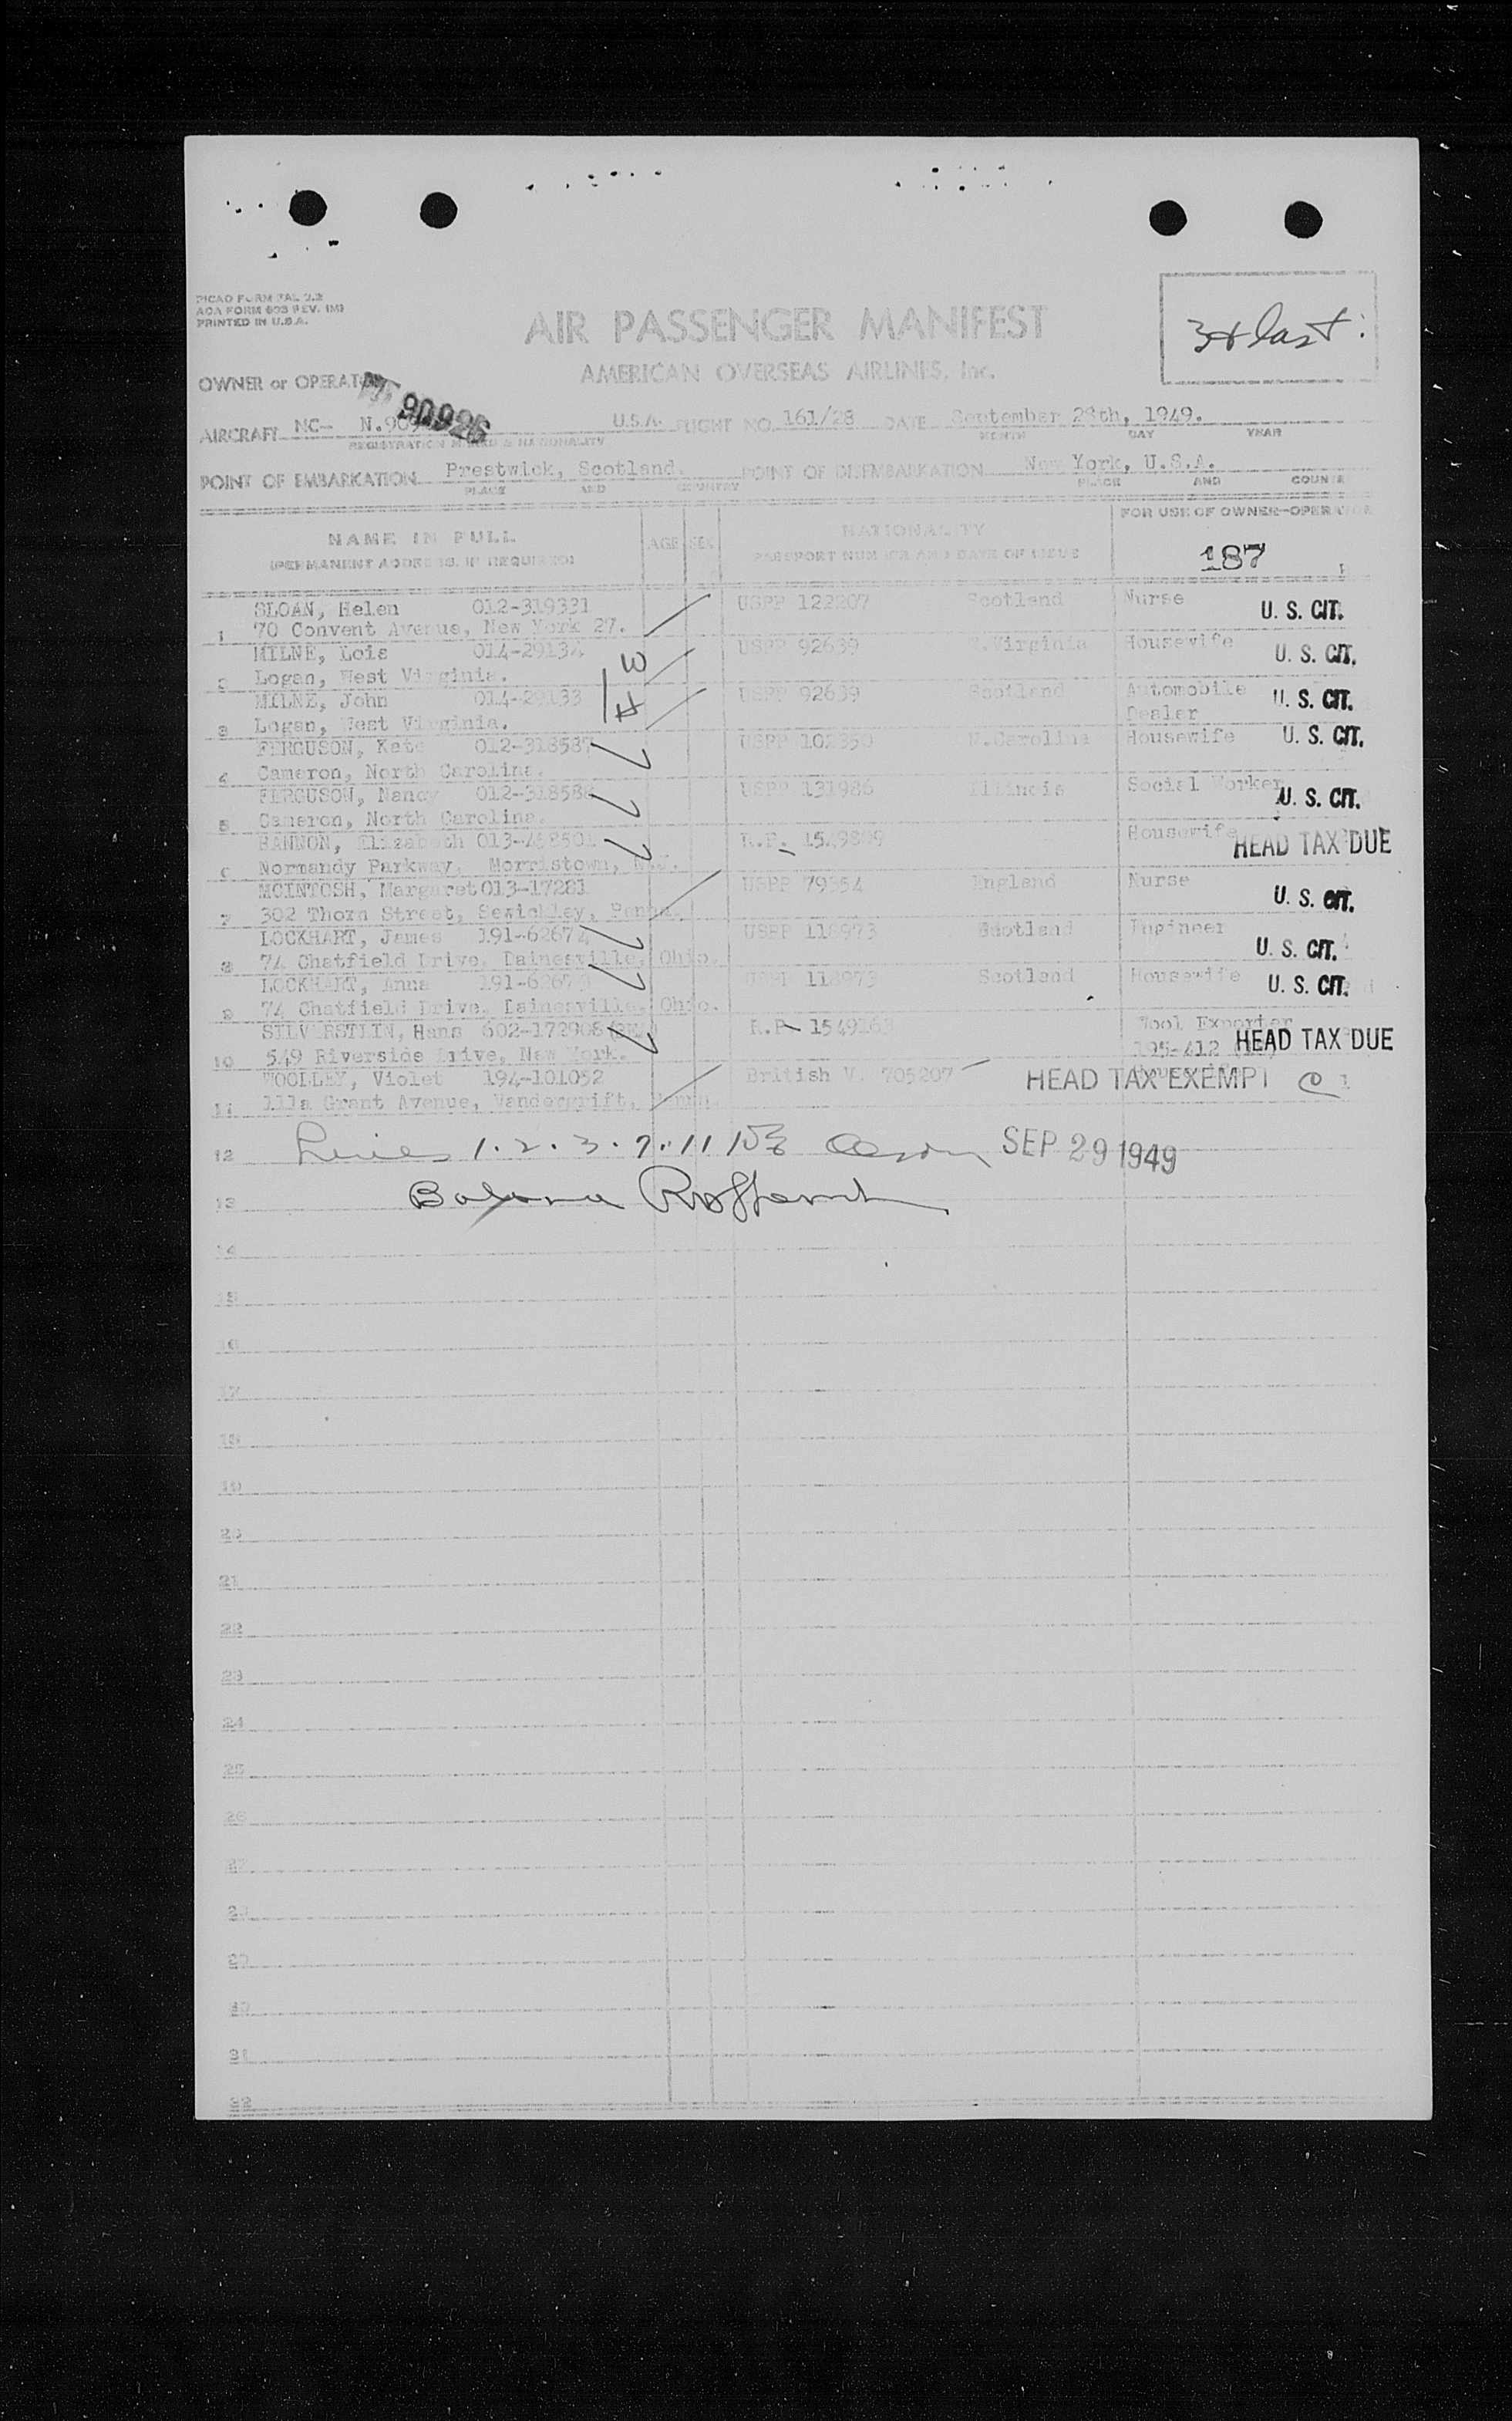 PICAO FORM FAL 2.2
AOA FORM 603 REV. (M)
PRINTED IN U.S.A.
AIR PASSENGER MANIFEST
AMERICAN OVERSEAS AIRLINES, Inc.
3 & last:
OWNER or OPERATOR
N 90926
AIRCRAFT NC- U.S.A. FLIGHT NO. 161/28 DATE September 28th, 1949.
REGISTRATION MARKS & NATIONALITY MONTH DAY YEAR
POINT OF EMBARKATION Prestwick, Scotland. POINT OF DISEMBARKATION New York, U.S.A.
PLACE AND COUNTRY PLACE AND COUNTRY
NAME IN FULL AGE SEX NATIONALITY FOR USE OF OWNER-OPERATOR
(PERMANENT ADDRESS, IF REQUIRED) PASSPORT NUMBER AND DATE OF ISSUE 187
SLOAN, Helen 012-319331 USPP 122207 Scotland Nurse U. S. CIT.
1 70 Convent Avenue, New York 27.
MILNE, Lois 014-29134 USPP 92639 W.Virginia Housewife U. S. CIT.
2 Logan, West Virginia. W
MILNE, John 014-29133 USPP 92639 Scotland Automobile U. S. CIT.
H Dealer
3 Logan, West Virginia.
FERGUSON, Kate 012-318587 USPP 102350 N.Carolina Housewife U. S. CIT.
4 Cameron, North Carolina.
FERGUSON, Nancy 012-318588 USPP 131986 Illinois Social Worker U. S. CIT.
5 Cameron, North Carolina.
HANNON, Elizabeth 013-458501 R.P. Housewife HEAD TAX DUE
6 Normandy Parkway, Morristown, N.J.
MCINTOSH, Margaret 013-17281 USPP 79354 England Nurse U. S. CIT.
7 302 Thorn Street, Sewickley, Penna.
LOCKHART, James 191-62672 USPP 118973 Scotland Engineer U. S. CIT.
8 74 Chatfield Drive, Painesville, Ohio.
LOCKHART, Anna USPP 118973 Scotland Housewife U. S. CIT.
9 74 Chatfield Drive, Painesville, Ohio.
SILVERSTEIN, Hans 602-172908 R.P. Wool Exporter HEAD TAX DUE
10 549 Riverside Drive, New York. 195-412
WOOLLEY, Violet 194-101052 British V. 705207 Housewife HEAD TAX EXEMPT
11 111a Grant Avenue, Vandergrift, Penna.
12 Lines 1. 2. 3. 7. 11 SEP 29 1949
13
14
15
16
17
18
19
20
21
22
23
24
25
26
27
28
29
30
31
32